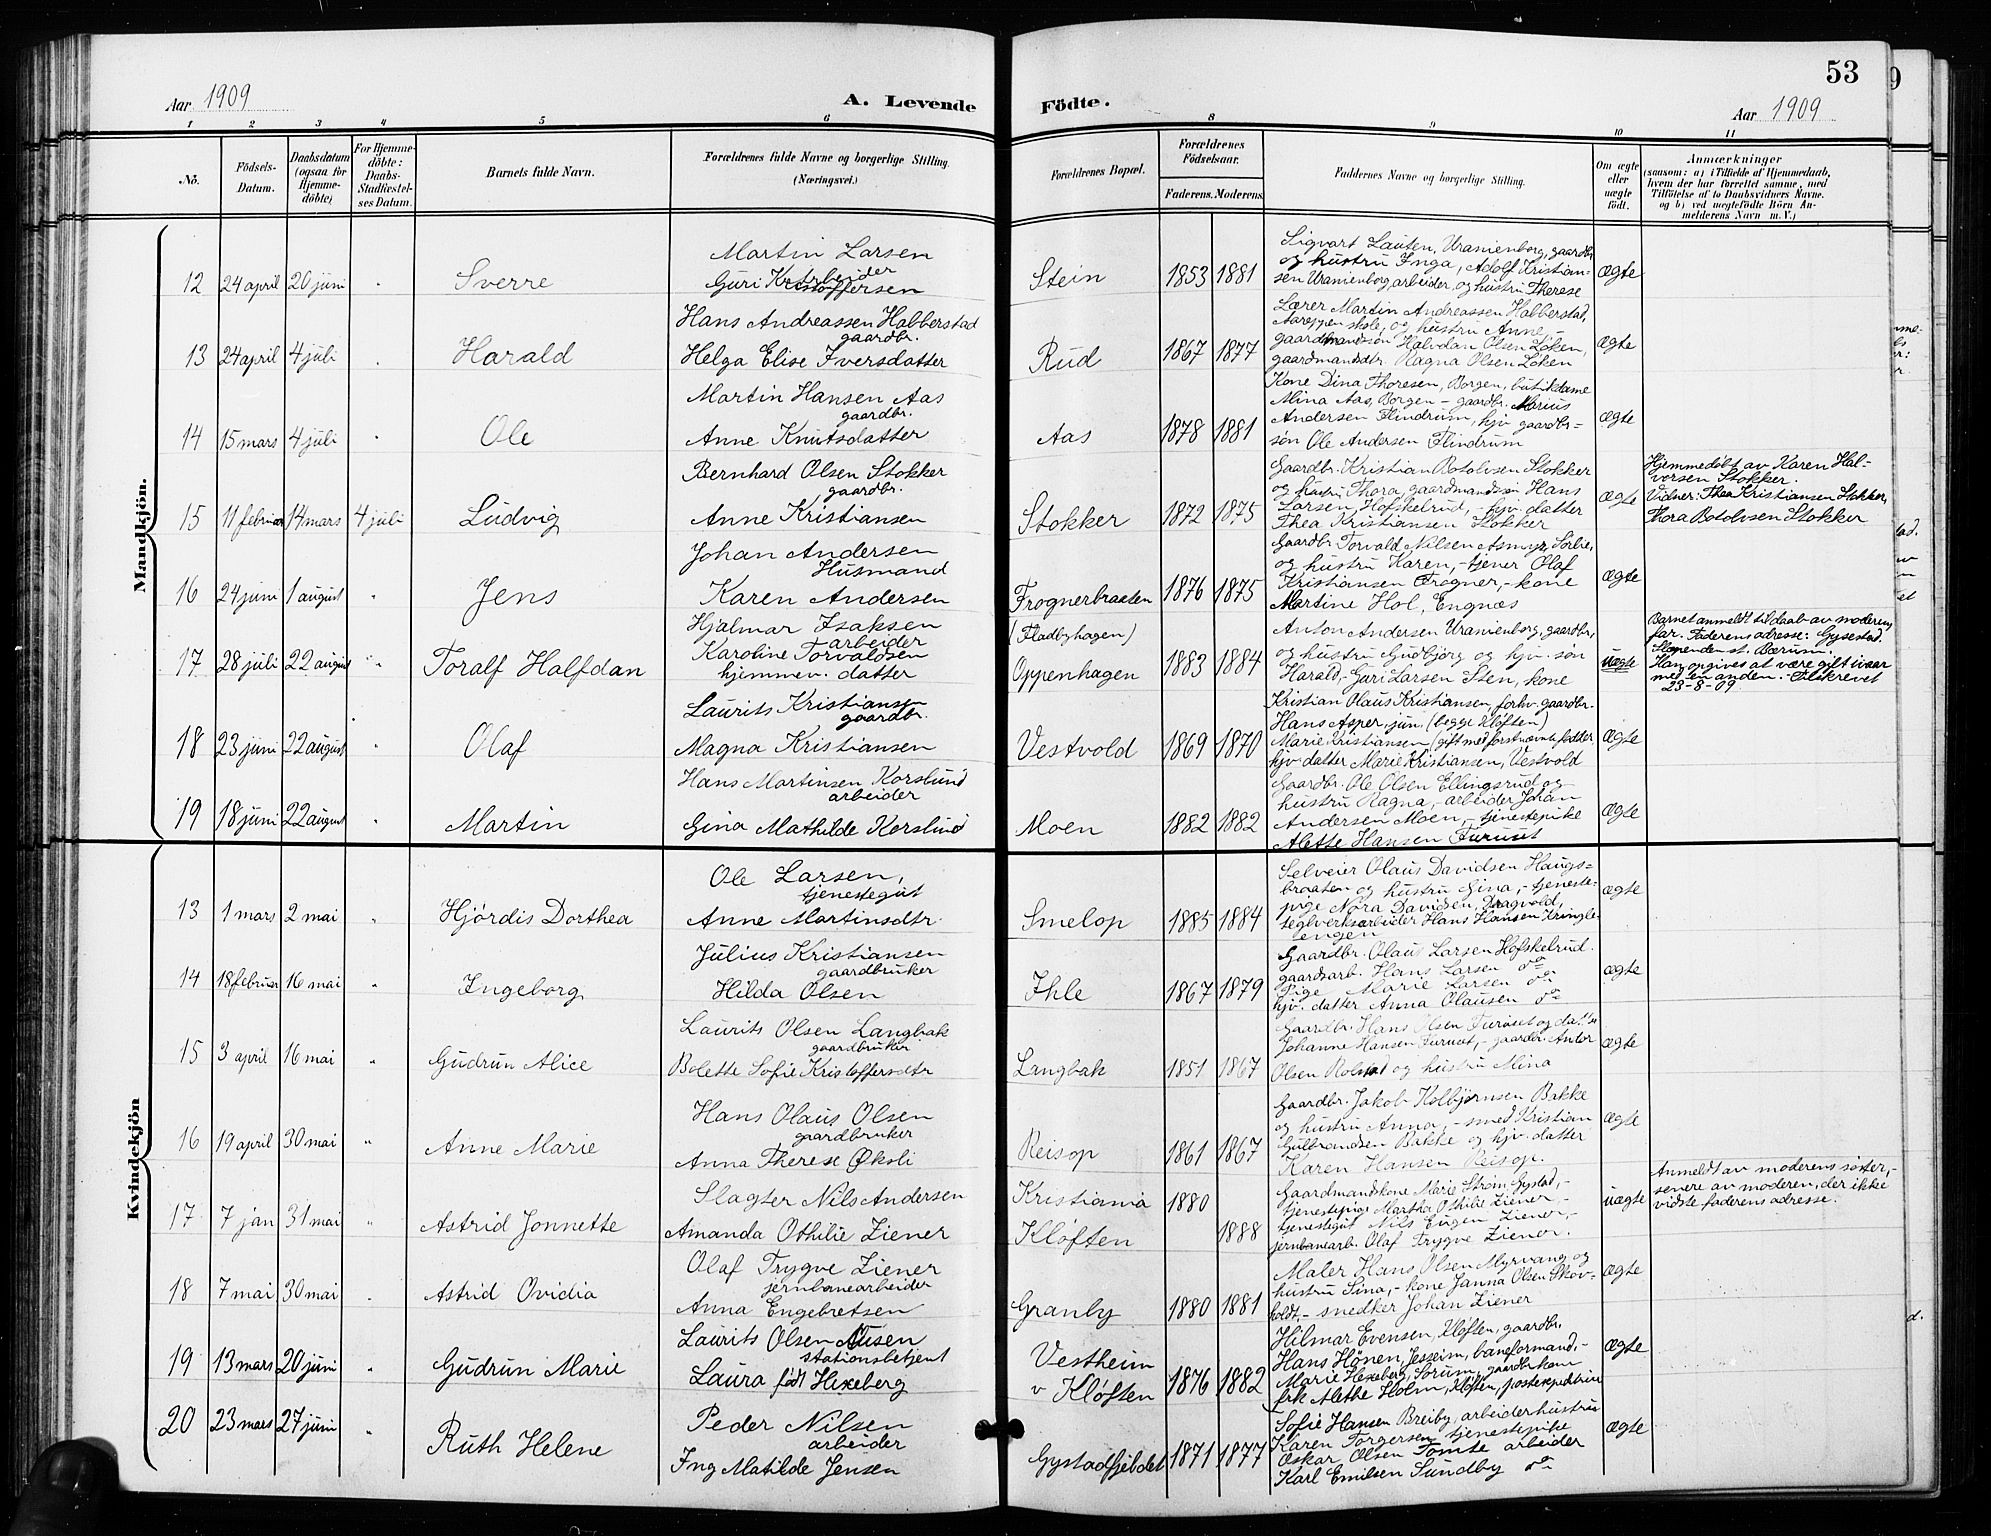 Aar 1909
A. Levende
Födte.
Aar 1909
53
1 2 3 4 5 6 8 9 10 11
No.
Födsels-
Datum.
Daabsdatum
(ogsaa for
Hjemme-
döbte)
For Hjemme-
döbte:
Daabs-
Stadfæstel-
ses Datum.
Barnets fulde Navn.
Forældrenes fulde Navne og borgerlige Stilling.
(Næringsvei.)
Forældrenes Bopæl.
Forældrenes
Födselsaar.
Faderens. Moderens.
Faddernes Navne og borgerlige Stilling.
Om ægte
eller
uægte
födt.
Anmærkninger
(saasom: a) i Tilfælde af Hjemmedaab,
hvem der har forrettet samme, med
Tilföielse af to Daabsvidners Navne.
og b) ved uegtefödte Börn An-
melderens Navn m. V.)
Mandkjön.
12 24 april 20 juni " Sverre
Martin Larsen
arbeider
Guri Kristoffersen
Stein 1853 1881
Sigvart Lauten, Uranienborg, gaardbr.
og hustru Inga, Adolf Kristian-
sen Uranienborg, arbeider, og hustru Therese
Ægte
13 24 april 4 juli " Harald
Hans Andreassen Habberstad
gaardbr.
Helga Elise Iversdatter
Rud 1867 1877
Lærer Martin Andreassen Habberstad,
skole, og hustru Anne,-
gaardmandsøn Halvdan Olsen Løken,
gaardmandsdtr. Ragna Olsen Løken
Ægte
14 15 mars 4 juli " Ole
Martin Hansen Aas
gaardbr.
Anne Knutsdatter
Aas 1878 1881
Kone Dina Thoresen, Borgen, butikdame
Mina Aas, Borgen - gaardbr. Marius
Andersen Flindrum, hjv gaardbr-
søn Ole Andersen Flindrum
Ægte
15 11 februar 14 mars 4 juli Ludvig
Bernhard Olsen Stokker
gaardbr.
Anne Kristiansen
Stokker 1872 1875
Gaardbr. Kristian Botolvsen Stokker
og hustru Thora, gaardmandssøn Hans
Larsen, Hofskelrud, - hjv. datter
Thea Kristiansen Stokker
Ægte
Hjemmedøbt av Karen Hal-
versen Stokker.
Vidner: Thea Kristiansen Stokker,
Thora Botolvsen Stokker
16 24 juni 1 august " Jens
Johan Andersen
Husmand
Karen Andersen
Frognerbraaten 1876 1875
Gaardbr. Torvald Nilsen Asmyr,
og hustru Karen, - tjener Olaf
Kristiansen Frogner, - kone
Martine Hol, Engnæs
Ægte
17 28 juli 22 august " Toralf Halfdan
Hjalmar Isaksen
arbeider
Karoline Torvaldsen
hjemmev. datter
(Fladbyhagen)
Oppenhagen 1883 1884
Anton Andersen Uranienborg, gaardbr,
og hustru Gudbjørg og hjv. søn
Harald, - Guri Larsen Sten, kone
uægte
Barnet anmeldt til daab av moderens
far. Faderens adresse: Gysestad.
Slependen st. Bærum.
Han opgives at være gift ivaar
med en anden. - Tilskrevet
23-8-09
18 23 juni 22 august " Olaf
Laurits Kristiansen
gaardbr.
Magna Kristiansen
Vestvold 1869 1870
Kristian Olaus Kristiansen, forhv. gaardbr.
Hans Asper, jun. (begge Kløften)
Marie Kristiansen (gift med førstnævnte fadder,
hjv. datter Marie Kristiansen, Vestvold
Ægte
19 18 juni 22 august " Martin
Hans Martinsen Korslund
arbeider
Gina Mathilde Korslund
Moen 1882 1882
Gaardbr. Ole Olsen Ellingsrud og
hustru Ragna, - arbeider Johan
Andersen Moen, - tjenestepike
Alette Hansen Furuset
Ægte
Kvindekjön
13 1 mars 2 mai " Hjørdis Dorthea
Ole Larsen,
tjenestegut
Anne Martinsdtr.
Smelop 1885 1884
Selveier Olaus Davidsen Haugs-
braaten og hustru Gina, - tjeneste-
pige Nora Davidsen, Dragvold,
teglverksarbeider Hans Hansen Kringle-
engen
Ægte
14 18 februar 16 mai " Ingeborg
Julius Kristiansen
gaardbruker
Hilda Olsen
Ihle 1867 1879
Gaardbr. Olaus Larsen Hofskelrud.
gaardsarb. Hans Larsen do
Pige Marie Larsen do
hjv. datter Anna Olausen do
Ægte
15 3 april 16 mai " Gudrun Alice
Laurits Olsen Langbak
gaardbruker.
Bolette Sofie Kristoffersdtr
Langbak 1851 1867
Gaardbr. Hans Olsen Furuset og datter
Johanne Hansen Furuset, - gaardbr. Anton
Olsen Rolstad og hustru Mina
Ægte
16 19 april 30 mai " Anne Marie
Hans Olaus Olsen
gaardbruker
Anna Therese Øksli
Reisop 1861 1867
Gaardbr. Jakob Kolbjørnsen Bakke
og hustru Anna, - smed Kristian
Gulbrandsen Bakke og hjv. datter
Karen Hansen Reisop.
Ægte
17 7 jan 31 mai " Astrid Jonnette
Slagter Nils Andersen
Amanda Othilie Ziener
Kristiania 1880
Kløften 1888
Gaardmandskone Marie Strøm, Gystad, -
tjenestepige Martha Othilie Ziener, -
tjenestegut Nils Eugen Ziener, -
jernbanearb. Olaf Trygve Ziener.
uægte
Anmeldt av moderens søster, -
senere av moderen, der ikke
vidste faderens adresse.
18 7 mai 30 mai " Astrid Ovidia
Olaf Trygve Ziener
jernbanearbeider
Anna Engebretsen
Granby 1880 1881
Maler Hans Olsen Myrvang og
hustru Sina, - kone Janna Olsen Skov-
holdt, - snedker Johan Ziener
Ægte
19 13 mars 20 juni " Gudrun Marie
Laurits Olsen Ausen
stationsbetjent
Laura født Hexeberg
Vestheim
v Kløften 1876 1882
Hilmar Evensen, Kløften, gaardbr,
Hans Hønen, Jesseim, baneformand, -
Marie Hexeberg, Sørum, gaardbr.kone
frk Alethe Holm, Kløften, postexpeditrice
Ægte
20 23 mars 27 juni " Ruth Helene
Peder Nilsen
arbeider
Ing Matilde Jensen
Gystadfjeldet 1871 1877
Sofie Hansen Breiby, arbeiderhustru
Karen Torgersen tjenestepike
Oskar Olsen Tomte arbeider
Karl Emilsen Sundby do
Ægte